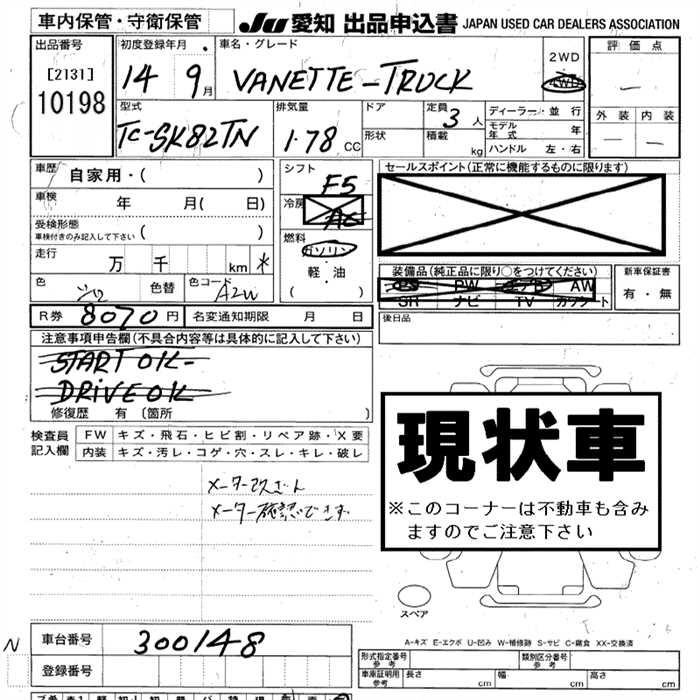 車内保管・守衛保管 JU 愛知 出品申込書 JAPAN USED CAR DEALERS ASSOCIATION
出品番号 初度登録年月 車名・グレード 2WD 評価点
[2131] 14 9月 VANETTE-TRUCK 4WD
10198 ー
型式 排気量 ドア 定員 3人 ディーラー・並行 外装 内装
TC-SK82TN 1.78 CC 形状 積載 kg モデル年式 年 ー ー
ハンドル 左・右
車歴 自家用・( ) シフト F5 セールスポイント(正常に機能するものに限ります)
車検 年 月( 日) 冷房 AC
受検形態 車検付きのみ記入して下さい ( ) 燃料 ガソリン
走行 万 千 km * 軽・油
色 色替 色コード A2W ( ) 装備品(純正品に限り○をつけてください) 新車保証書
PS PW エアB AW 有・無
SR ナビ TV カワシート
R券 8070円 名変通知期限 月 日 後日品
注意事項申告欄(不具合内容等は具体的に記入して下さい)
START OK-
DRIVE OK
修復歴 有 〔箇所 〕
検査員記入欄 FW キズ・飛石・ヒビ割・リペア跡・X要
内装 キズ・汚レ・コゲ・穴・スレ・キレ・破レ
現状車
※このコーナーは不動車も含み
ますのでご注意下さい
メーター
メーター確認できず
スペア
A-キズ E-エクボ U-凹み W-補修跡 S-サビ C-腐食 XX-交換済
N 車台番号 300148
登録番号
形式指定番号 参考 類別区分番号 参考
車庫証明用 参考 長さ cm 幅 cm 高さ cm